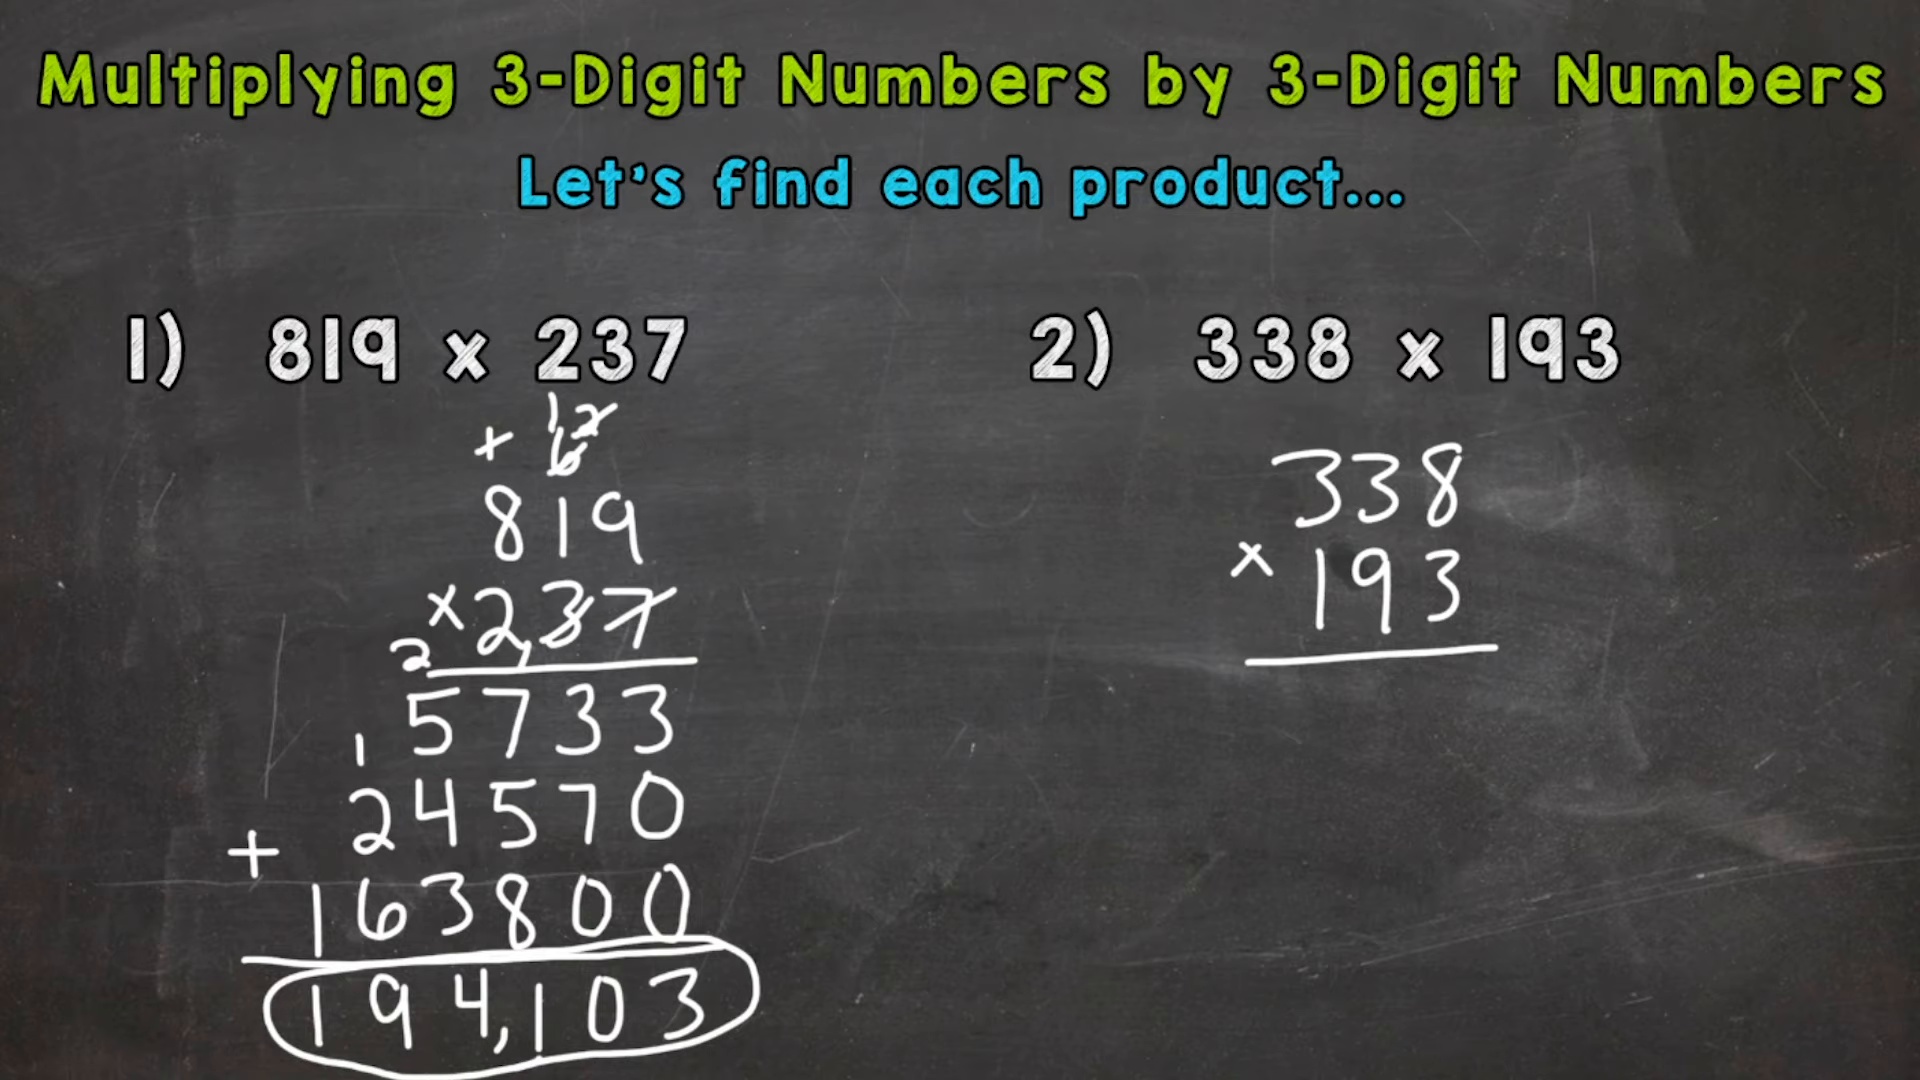 Multiplying 3-Digit Numbers by 3-Digit Numbers
Let's find each product...
1) 819 x 237
12
+ 6
819
x 237
2
5733
1
24570
+
163800
194,103
2) 338 x 193
338
x 193